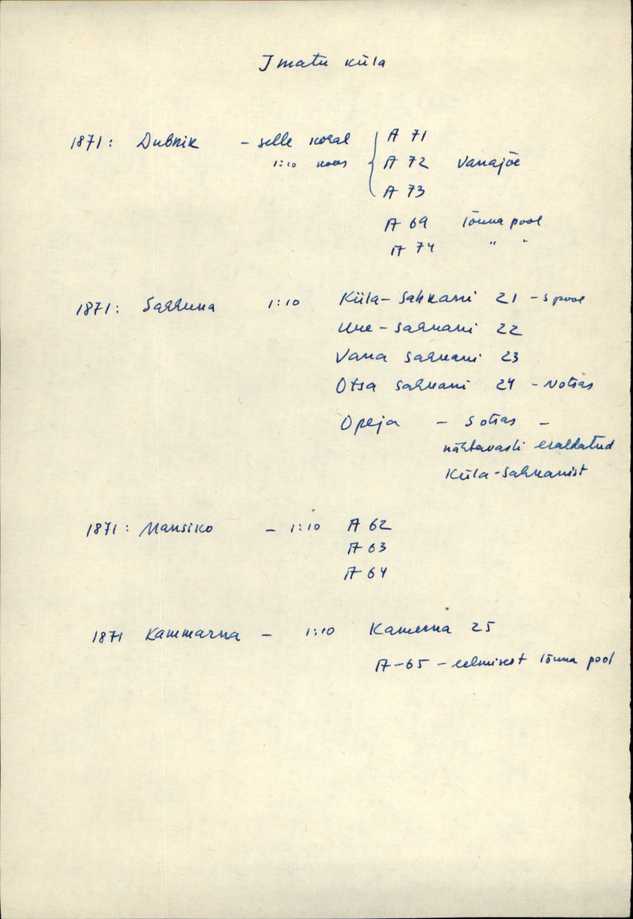 Imatu küla
1871: Dubnik - selle kohal A 71
1:10 koos A 72 Vanajõe
A 73
A 69 lõuna pool
A 74 " "
1871: Sahkuna 1:10 Küla-Sahkani 21 - S pool
Uue-Sahkani 22
Vana Sahkani 23
Otsa Sahkani 24 - N otsas
Opeja - S otsas -
nähtavasti eraldatud
Küla-Sahkanist
1871: Mansiko - 1:10 A 62
A 63
A 64
1871 Kammarna - 1:10 Kamerna 25
A-65 - eelmisest lõuna pool